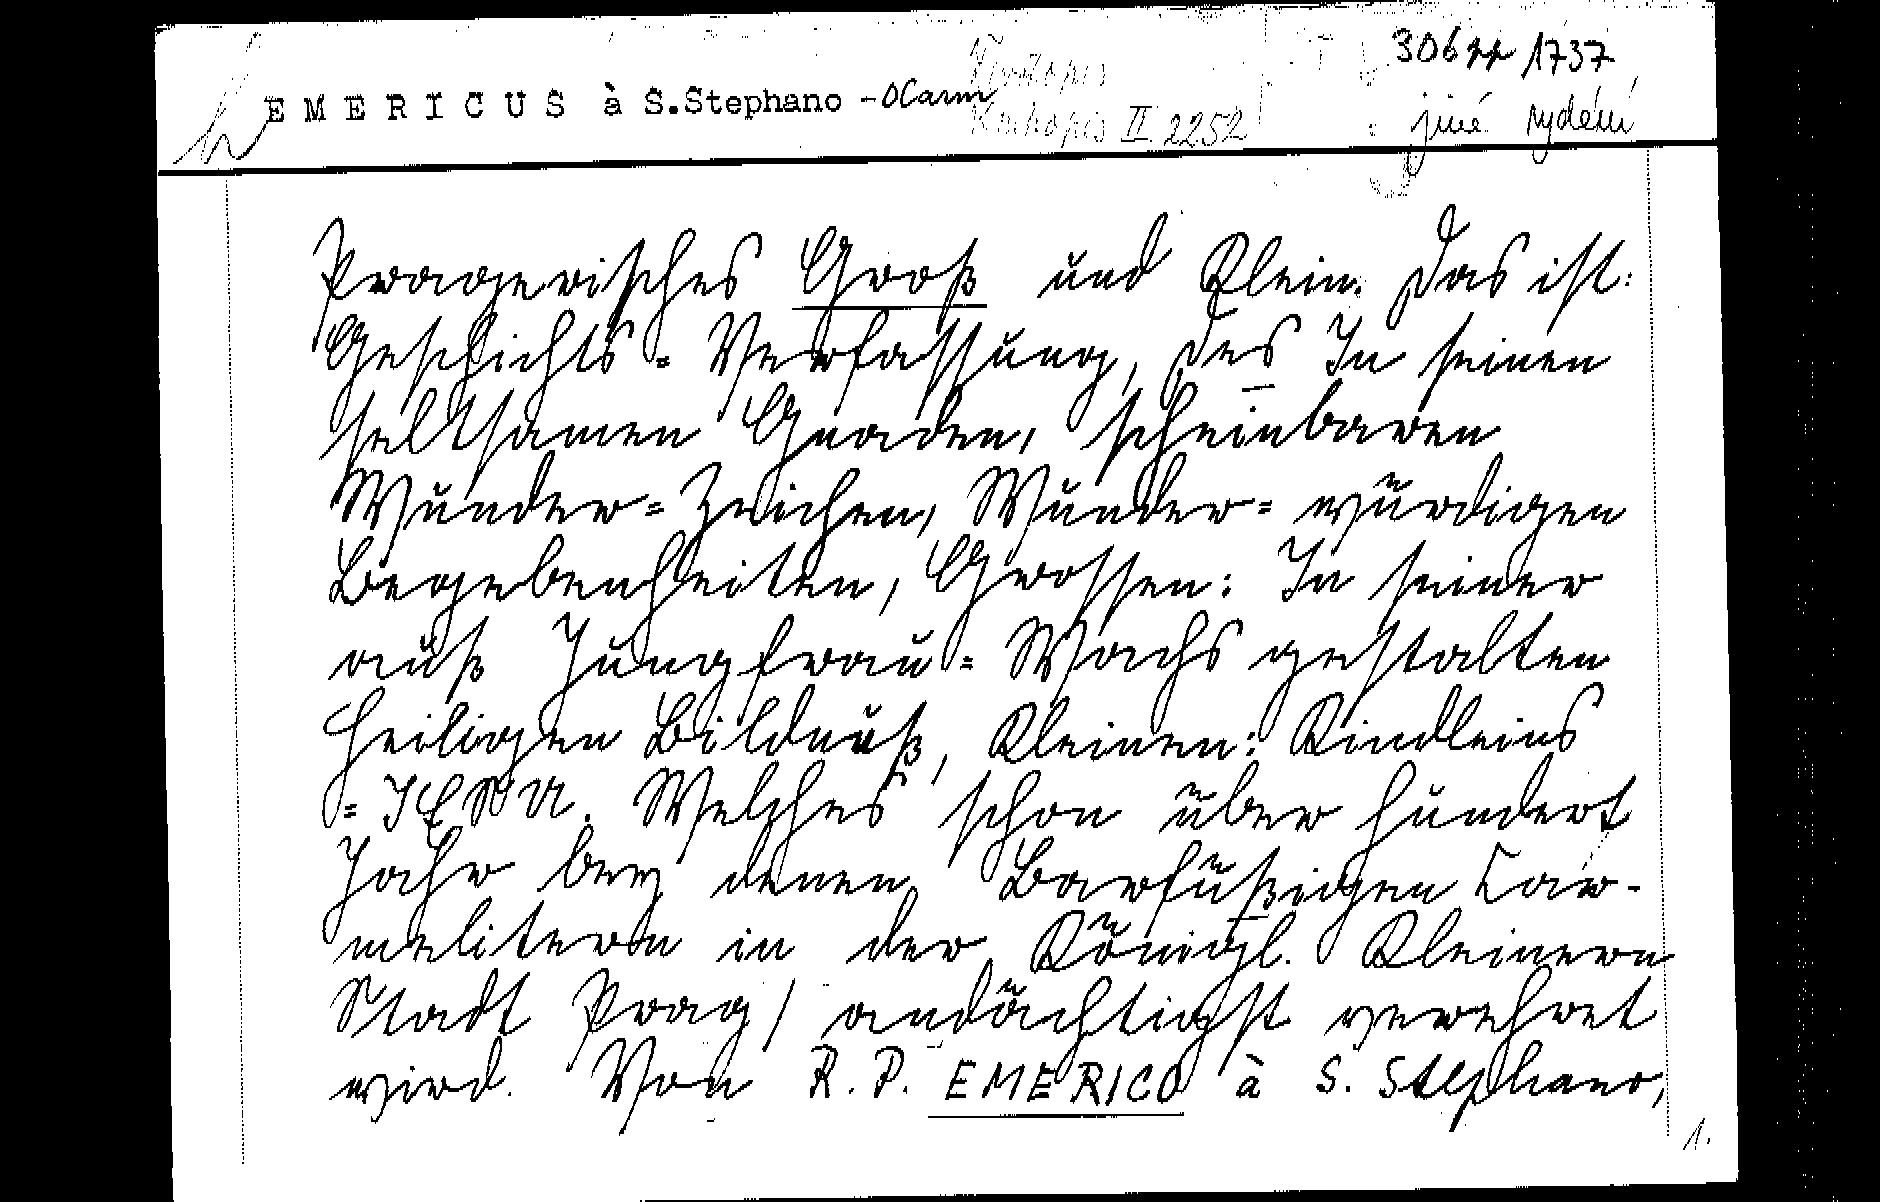 306 1737
EMERICUS à S.Stephano - OCarm
Knihopis II 2252
jiné vydání
Pragerisches Groß und Klein. Das ist:
Geschichts= Verfassung, des In seinen
seltsamen Gnaden, scheinbaren
Wunder=Zeichen, Wunder= würdigen
Begebenheiten, Grossen: In seiner
auß Jungfrau= Wachs gestalten
heiligen Bildnuß, Kleinen: Kindleins
= JESU. Welches schon über hundert
Jahr bey denen Barfüßigen Car-
melitern in der Königl. Kleinern
Stadt Prag / andächtigst verehret
wird. Von R. P. EMERICO à S. Stephano,
1.